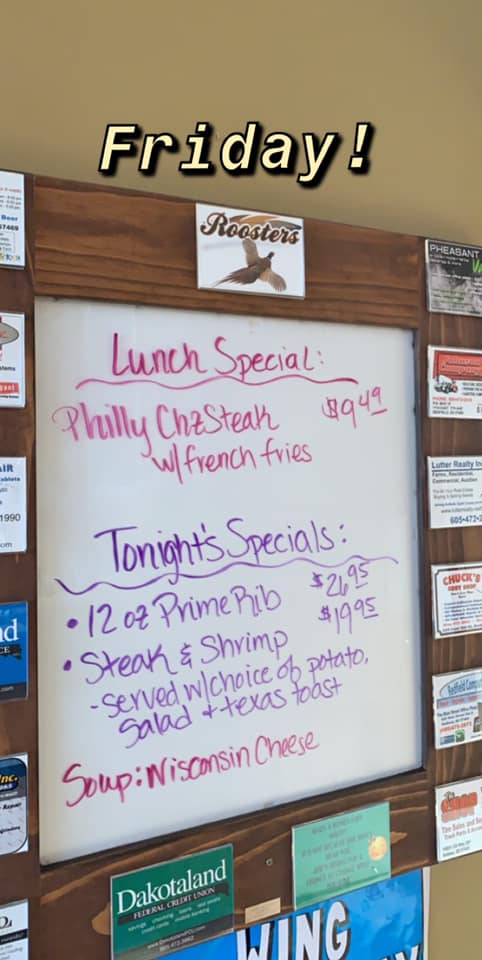 Friday!
Roosters
Lunch Special:
Philly ChzSteak $9.49
w/french fries
Tonight's Specials:
• 12 oz Prime Rib $26.95
• Steak & Shrimp $19.95
- served w/choice of potato,
salad + texas toast
Soup: Wisconsin Cheese
Beer
57469
AIR
1990
PHEASANT
Lutter Realty In
Farms, Residential,
Commercial, Auction
605-472-2
CHUCK'S
Dakotaland
FEDERAL CREDIT UNION
www.DakotalandFCU.com
WING